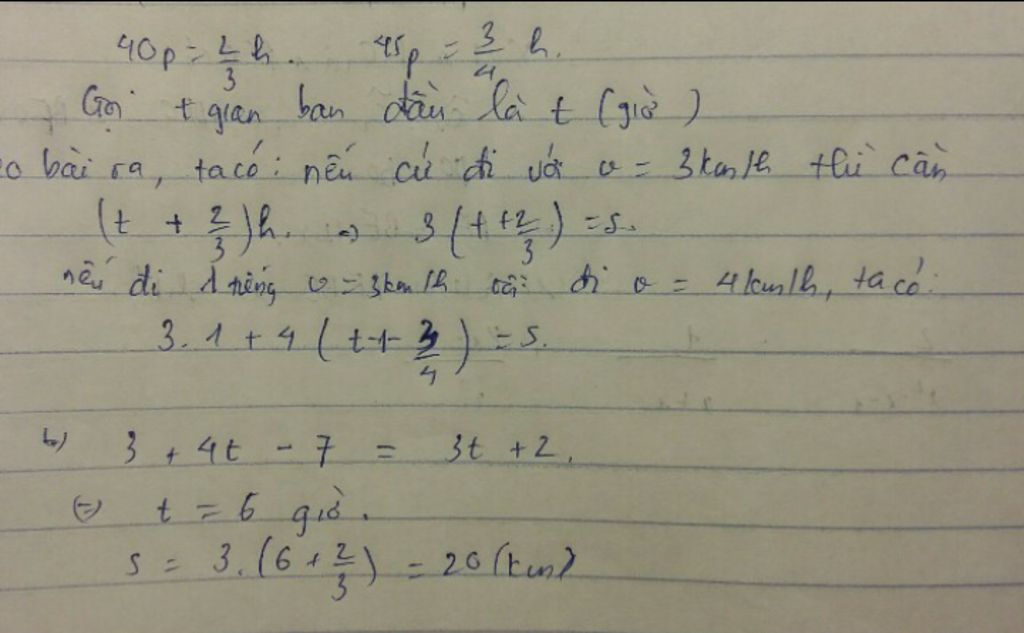 40p = 2/3 h. 45p = 3/4 h.
Gọi t gian ban đầu là t (giờ)
eo bài ra, ta có: nếu cứ đi với v = 3km/h thì cần
(t + 2/3)h. => 3(t + 2/3) = s.
nếu đi 1 tiếng v = 3km/h rồi đi v = 4km/h, ta có:
3.1 + 4(t-1-3/4) = s.
b) 3 + 4t - 7 = 3t + 2.
(=) t = 6 giờ.
s = 3.(6 + 2/3) = 20 (km)